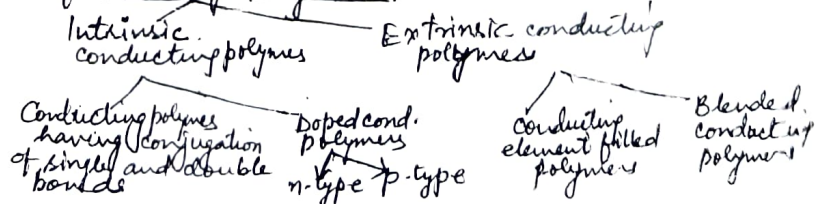 Intrinsic
conducting polymers
Extrinsic conducting
polymers
Conducting polymers
having conjugation
of single and double
bonds
Doped cond.
polymers
n-type p-type
conducting
element filled
polymers
Blended
conducting
polymers